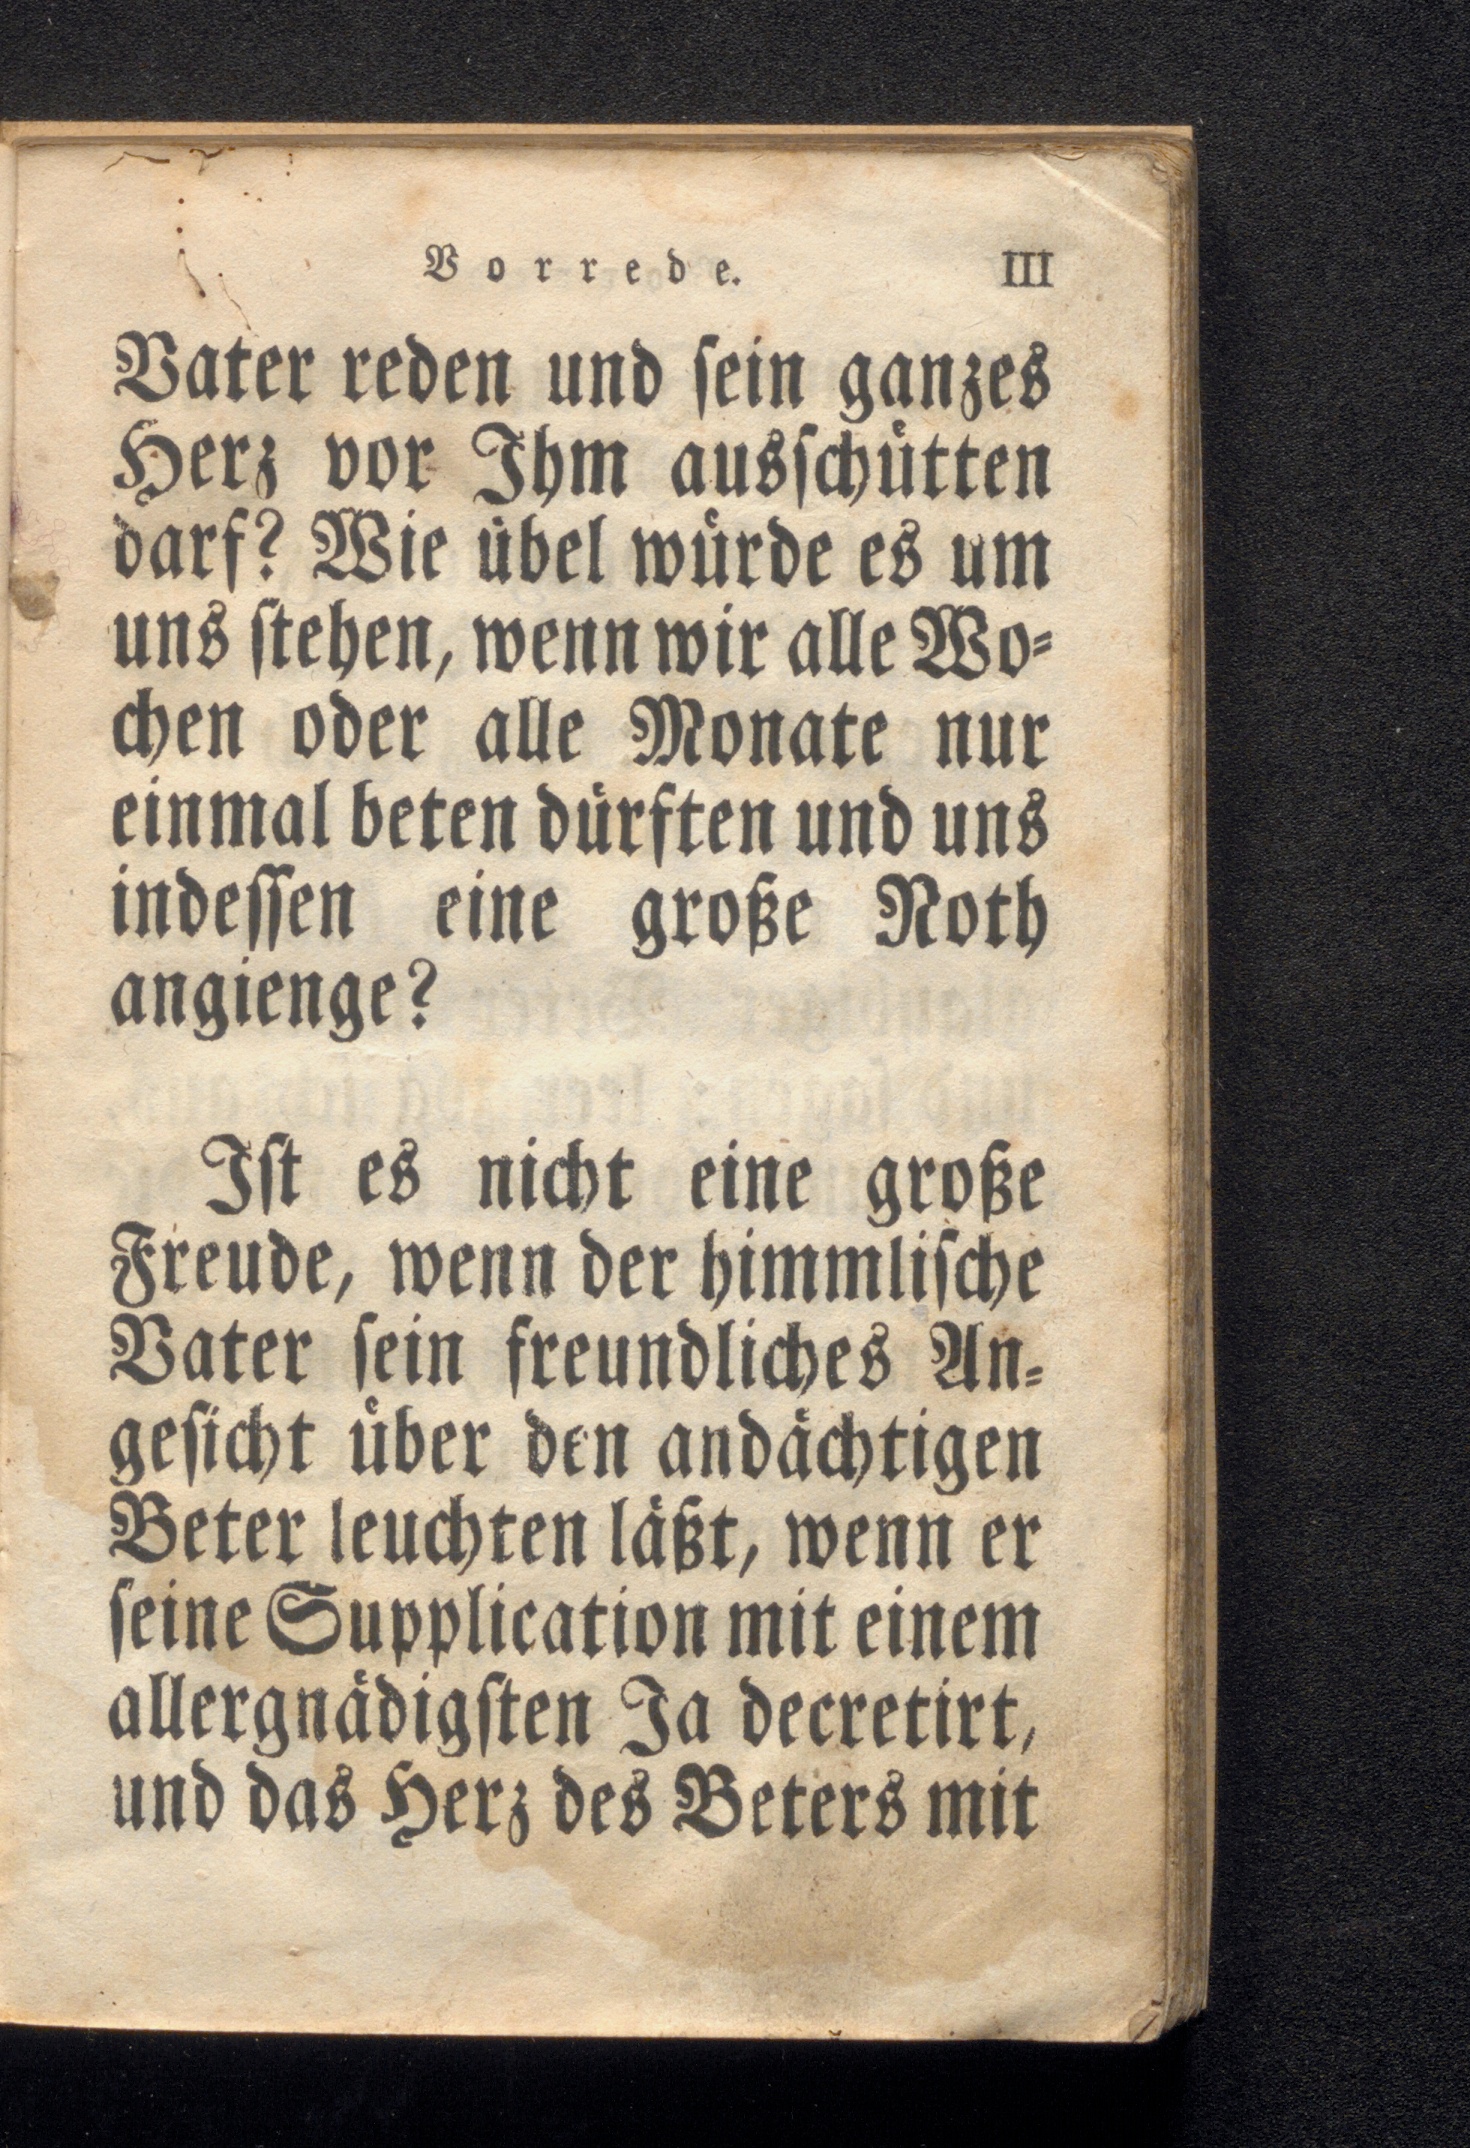 Vorrede. III
Vater reden und ſein ganzes
Herz vor Ihm ausſchuͤtten
darf? Wie uͤbel wuͤrde es um
uns ſtehen, wenn wir alle Wo⸗
chen oder alle Monate nur
einmal beten duͤrften und uns
indeſſen eine große Noth
angienge?
Iſt es nicht eine große
Freude, wenn der himmliſche
Vater ſein freundliches An⸗
geſicht uͤber den andaͤchtigen
Beter leuchten laͤßt, wenn er
ſeine Supplication mit einem
allergnaͤdigſten Ja decretirt,
und das Herz des Beters mit